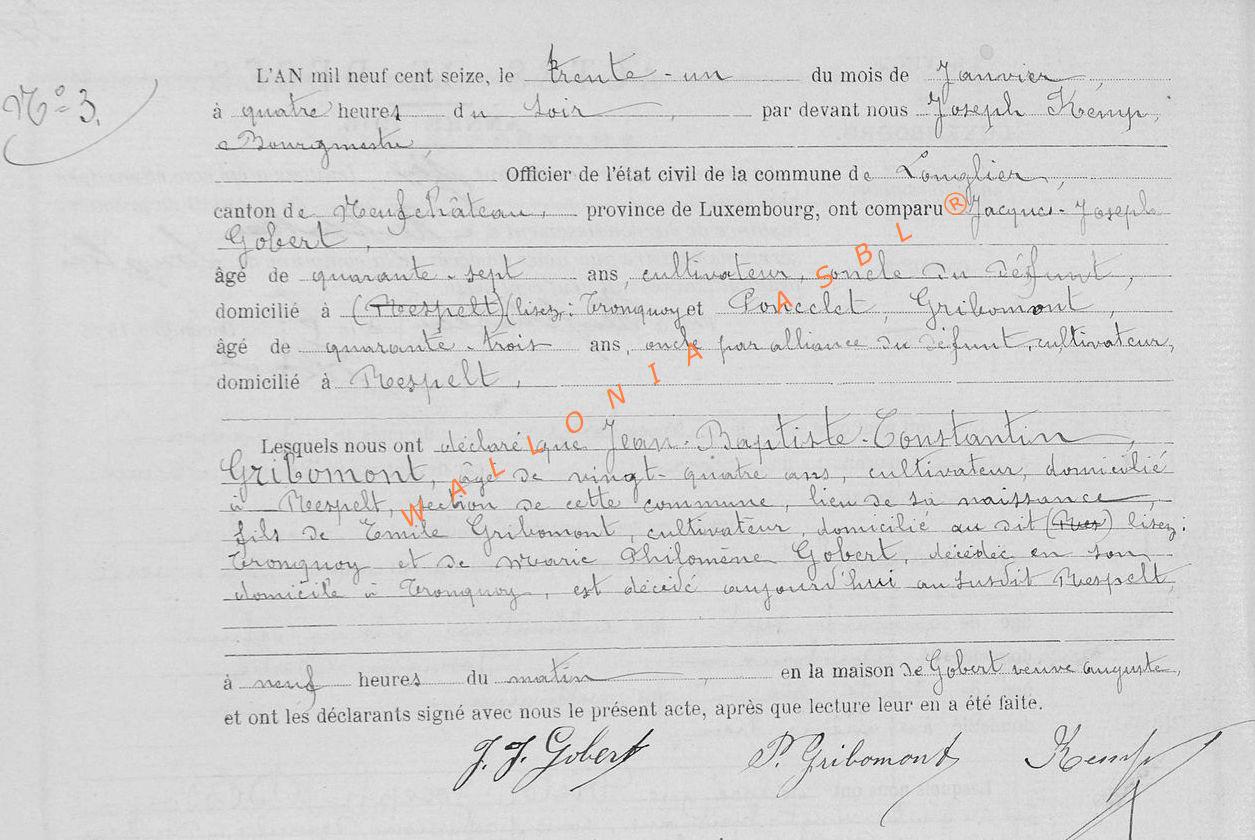 L'AN mil neuf cent seize, le trente-un du mois de Janvier,
N° 3. à quatre heures du soir, par devant nous Joseph Kemp,
Bourgmestre,
Officier de l'état civil de la commune de Longlier,
canton de Neufchâteau, province de Luxembourg, ont comparu ® Jacques-Joseph
Gobert,
âgé de quarante-sept ans, cultivateur, oncle du défunt,
domicilié à (Respelt) (lisez: Tronquoy et Poncelet, Gribomont,
âgé de quarante-trois ans, oncle par alliance du défunt, cultivateur,
domicilié à Respelt,
Lesquels nous ont déclaré que Jean-Baptiste-Constantin
Gribomont, âgé de vingt-quatre ans, cultivateur, domicilié
à Respelt, section de cette commune, lieu de sa naissance,
fils de Emile Gribomont, cultivateur, domicilié au dit (Res) lisez:
Tronquoy et de Marie Philomène Gobert, décédée en son
domicile à Tronquoy, est décédé aujourd'hui au susdit Respelt,
à neuf heures du matin, en la maison de Gobert veuve auguste,
et ont les déclarants signé avec nous le présent acte, après que lecture leur en a été faite.
J. J. Gobert P. Gribomont Kemp
WALLONIA ASBL